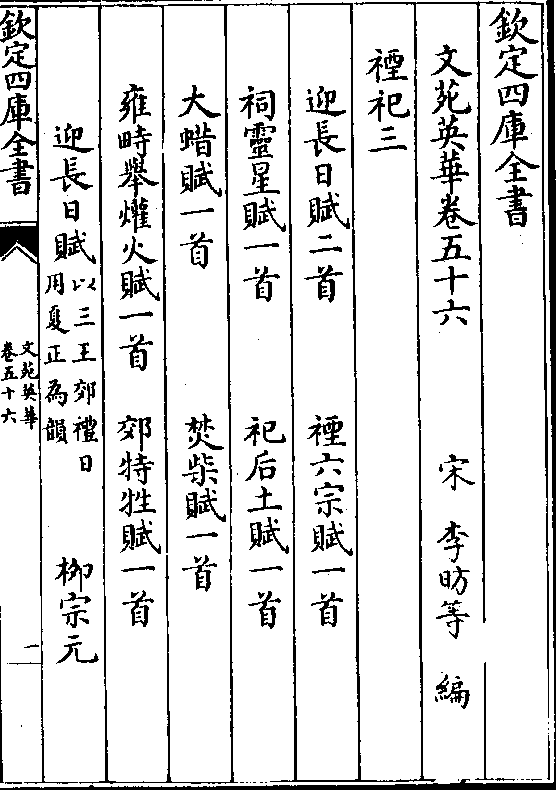 欽定四庫全書
文苑英華卷五十六
宋 李昉等 編
禋祀三
迎長日賦二首 禋六宗賦一首
祠靈星賦一首 祀后土賦一首
大蜡賦一首 焚柴賦一首
雍畤舉爟火賦一首 郊特牲賦一首
迎長日賦 以三王郊禮日用夏正為韻 柳宗元
欽定四庫全書
文苑英華
卷五十六
一